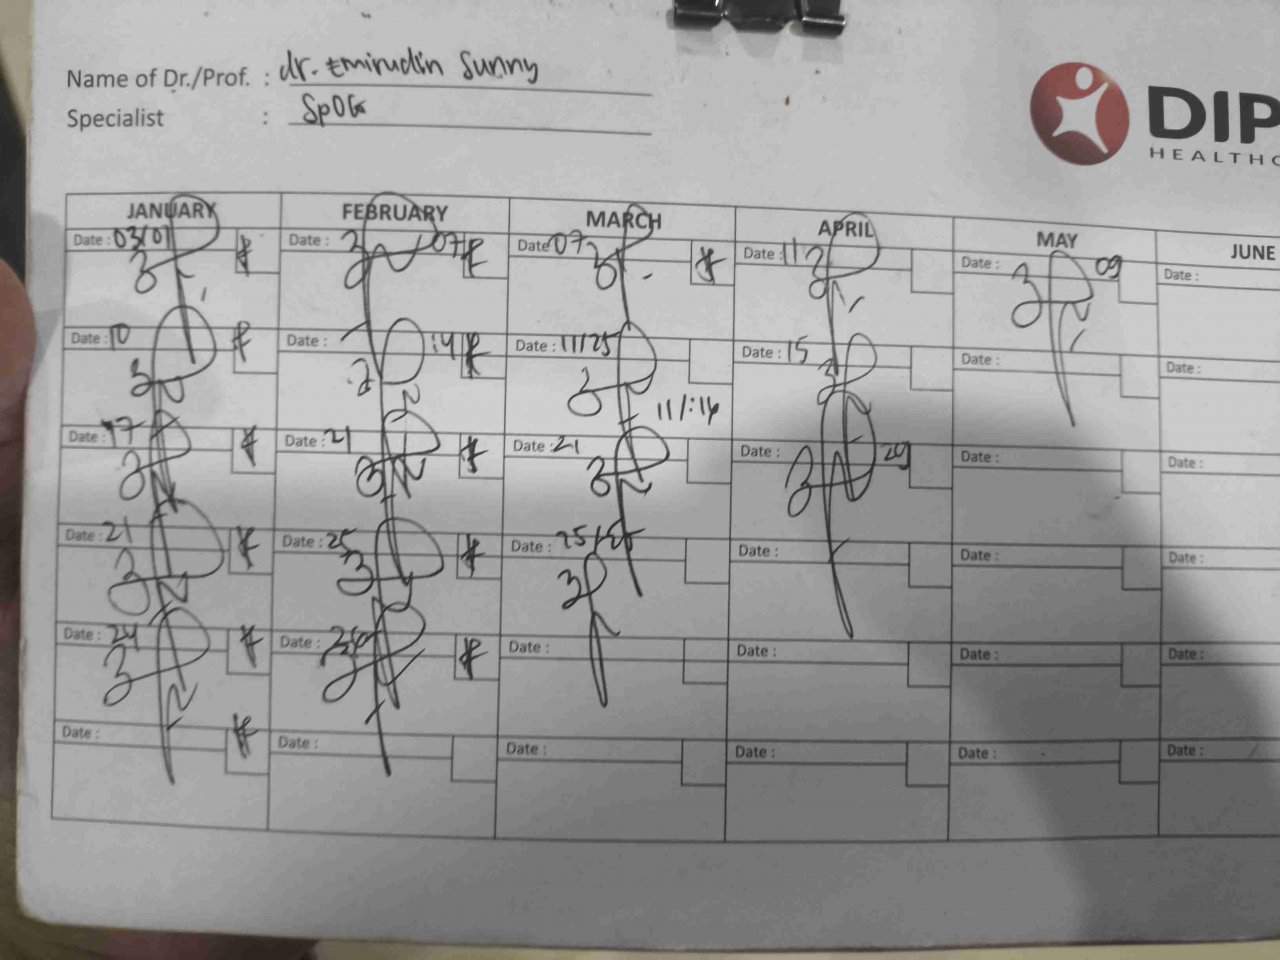 Name of Dr./Prof. : dr. Emirudin Sunny
Specialist : SpOG
DIP
HEALTHC
JANUARY FEBRUARY MARCH APRIL MAY JUNE
Date : 03/01 Date : 07 Date : 07 Date : 11 Date : 09 Date :
Date : 10 Date : 14 Date : 11/25 Date : 15 Date : Date :
11/:14
Date : 17 Date : 21 Date : 21 Date : 29 Date : Date :
Date : 21 Date : 25 Date : 25 Date : Date : Date :
Date : 24 Date : Date : Date : Date : Date :
Date : Date : Date : Date : Date : Date :